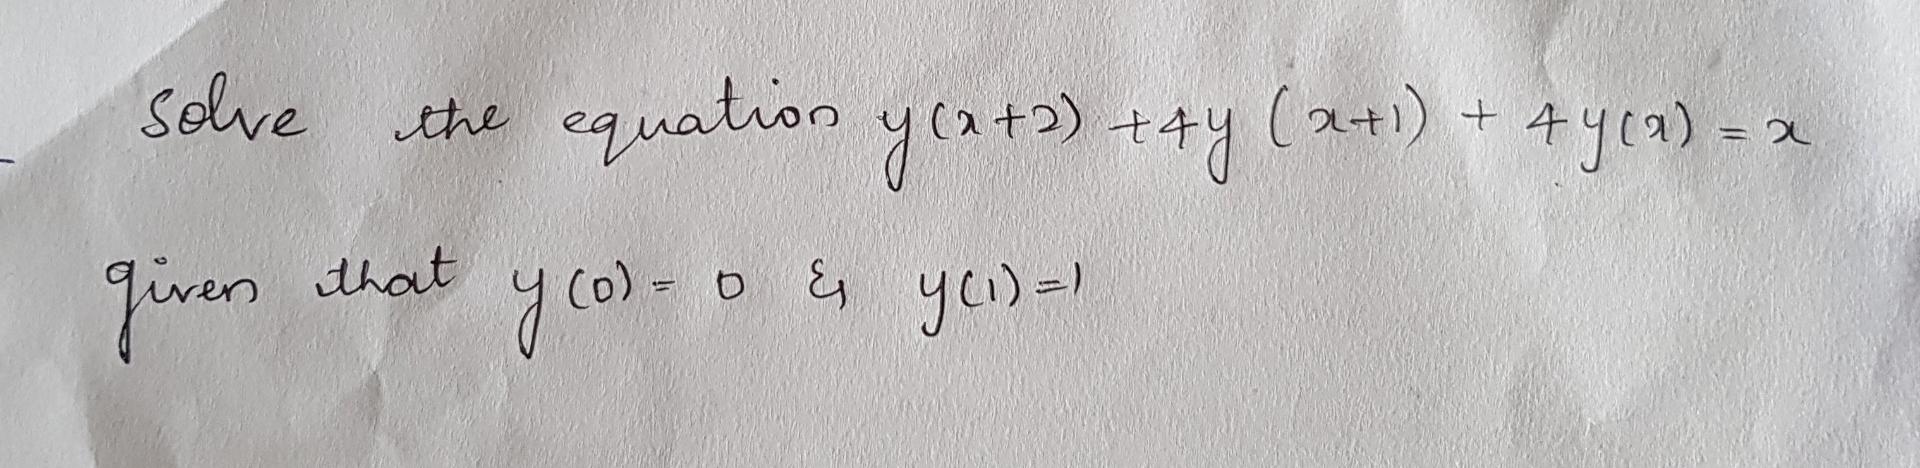 Solve the equation y(x+2) +4y (x+1) + 4y(x) = x
given that y(0) = 0 & y(1) = 1